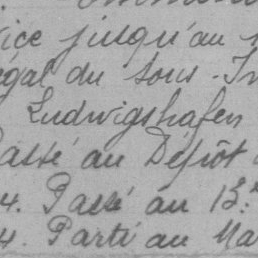 vice jusqu'au
égal du sous-In
Ludwigshafen
Passé au Dépôt
4. Passé au 13.e
4. Parti au Ma